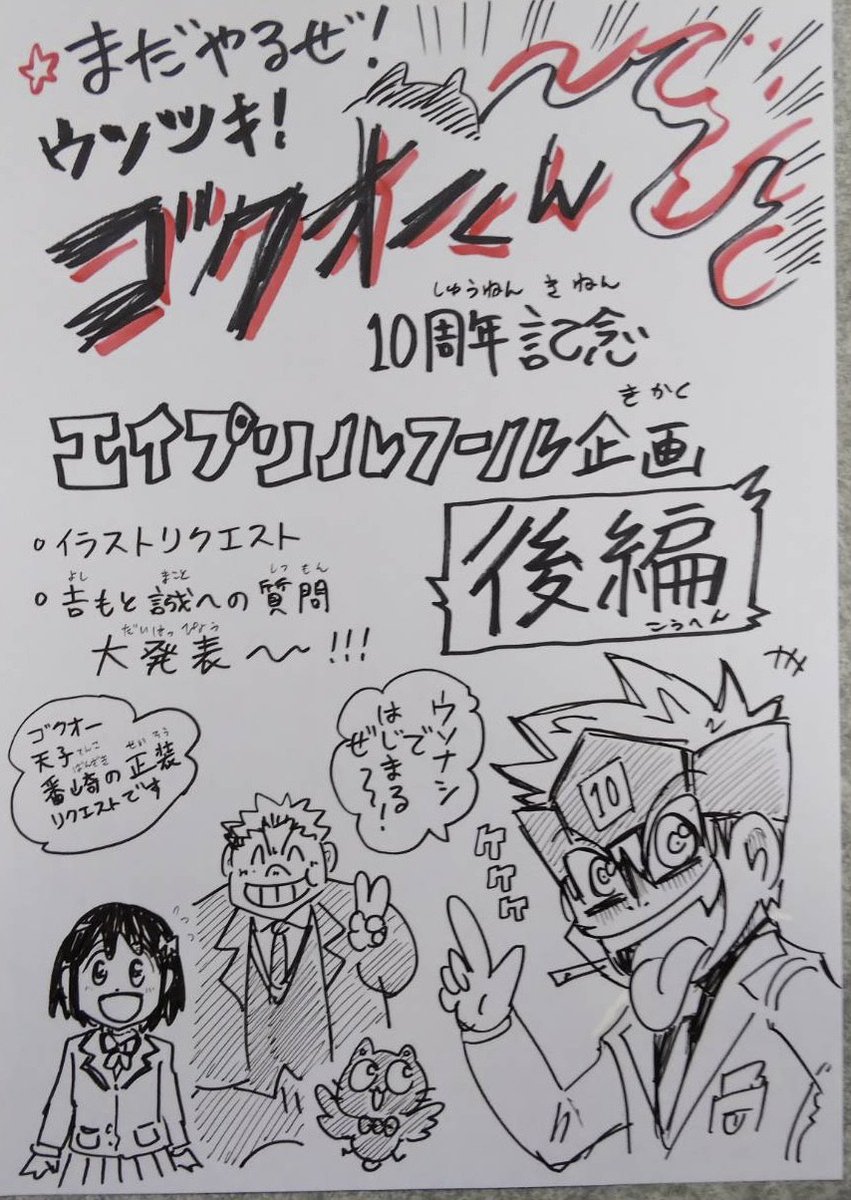 まだやるぜ!
ウソツキ!
ゴクオーくん
しゅうねん きねん
10周年記念
きかく
エイプリルフール企画
後編
こうへん
○イラストリクエスト
よし まこと しつもん
○吉もと誠への質問
だいはっぴょう
大発表〜〜!!!
ウソナシ
で
はじまる
ぜ〜〜!
ゴクオー
てんこ せいそう
天子
ばんざき
番崎の正装
リクエストです
10
ケケケ